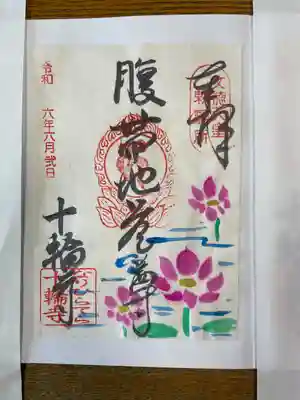 奉拝
腹帯地蔵尊
十輪寺
令和 六年六月弐日
十輪寺